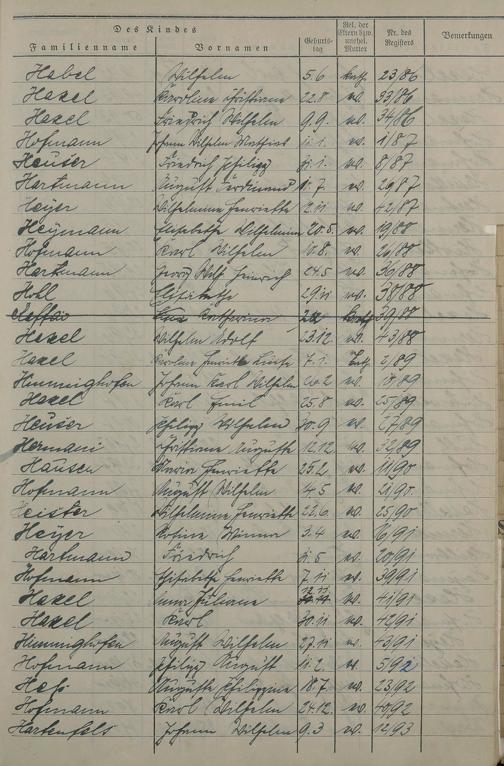 Des Kindes
Familienname Vornamen Geburts-tag Rel. der Eltern bzw. unehel. Mutter Nr. des Registers Bemerkungen
Habel Wilhelm 5.6 kath. 23/86
Hazel Karoline Christiane 22.8 ev. 33/86
Hazel Friedrich Wilhelm 9.9. ev. 34/86
Hofmann Johann Wilhelm Mathias 11.1. ev. 1/87
Heuser Friedrich Philipp ev. 8/87
Hartmann August Ferdinand 1.7. ev. 29/87
Heyer Wilhelmine Henriette 2.11 ev. 42/87
Heymann Elisabetha Wilhelmine 20.5. ev. 19/88
Hofmann Karl Wilhelm 10.8. ev. 26/88
Hartmann Georg Wilh. Heinrich 24.5 ev. 36/88
Hohl Elisabetha 29.11 ev. 38/88
Katharina 39/88
Hazel Wilhelm Adolf 23.12 ev. 43/88
Hazel Karoline Henriette Luise 7.1. 2/89
Himmighofen Johann Karl Wilhelm ev. 10/89
Hazel Karl Emil 25.8 ev. 25/89
Heuser Philipp Wilhelm 30.9 ev. 27/89
Hermani Christiane Auguste 12.12. ev. 32/89
Hausen Maria Henriette 25.2 ev. 11/90
Hofmann August Wilhelm 4.5 ev. 21/90.
Heister Wilhelmine Henriette 22.6. ev. 25/90
Heyer 3.4 ev. 16/91
Hartmann Friedrich 11.5 ev. 20/91
Hofmann Elisabetha Henriette 7.11 ev. 39/91
Hazel Anna Juliane 12.11 ev. 41/91
Hazel Karl 30.11 ev. 42/91
Himmighofen August Wilhelm 27.11 ev. 43/91
Hofmann Philipp August 11.2. ev. 5/92
Heß Auguste Philippine 18.7. ev. 23/92
Hofmann Karl Wilhelm 24.12. ev. 40/92
Hartenfels Johann Wilhelm 9.3 ev. 12/93